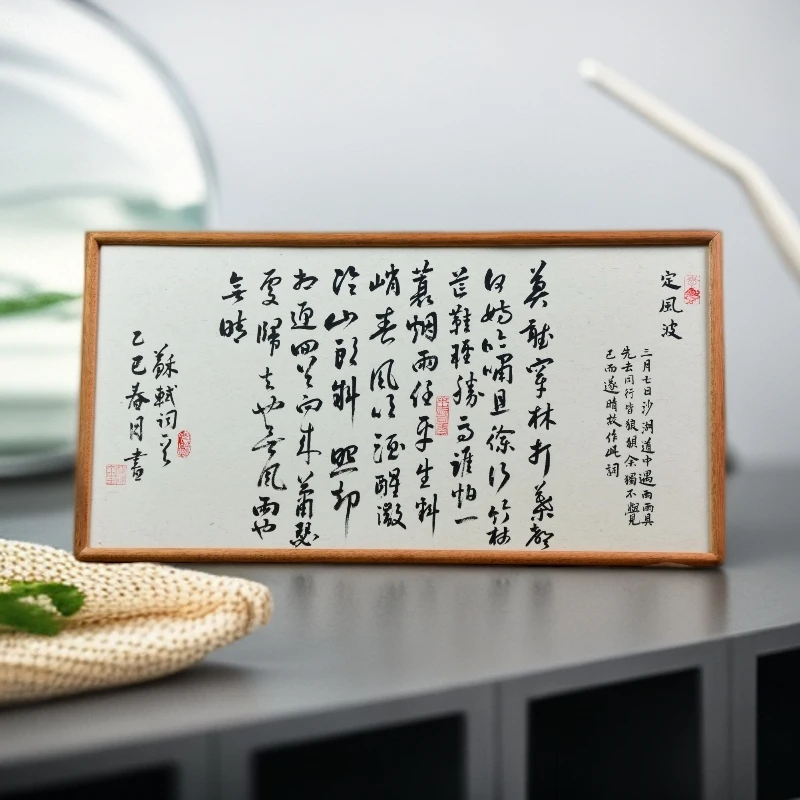 定風波
三月七日沙湖道中遇雨雨具
先去同行皆狼狽余獨不覺
已而遂晴故作此詞
莫聽穿林打葉聲
何妨吟嘯且徐行竹杖
芒鞋輕勝馬誰怕一
蓑烟雨任平生料
峭春風吹酒醒微
冷山頭斜照却
相迎回首向來蕭瑟
處歸去也無風雨也
無晴
蘇軾詞
乙巳春月書